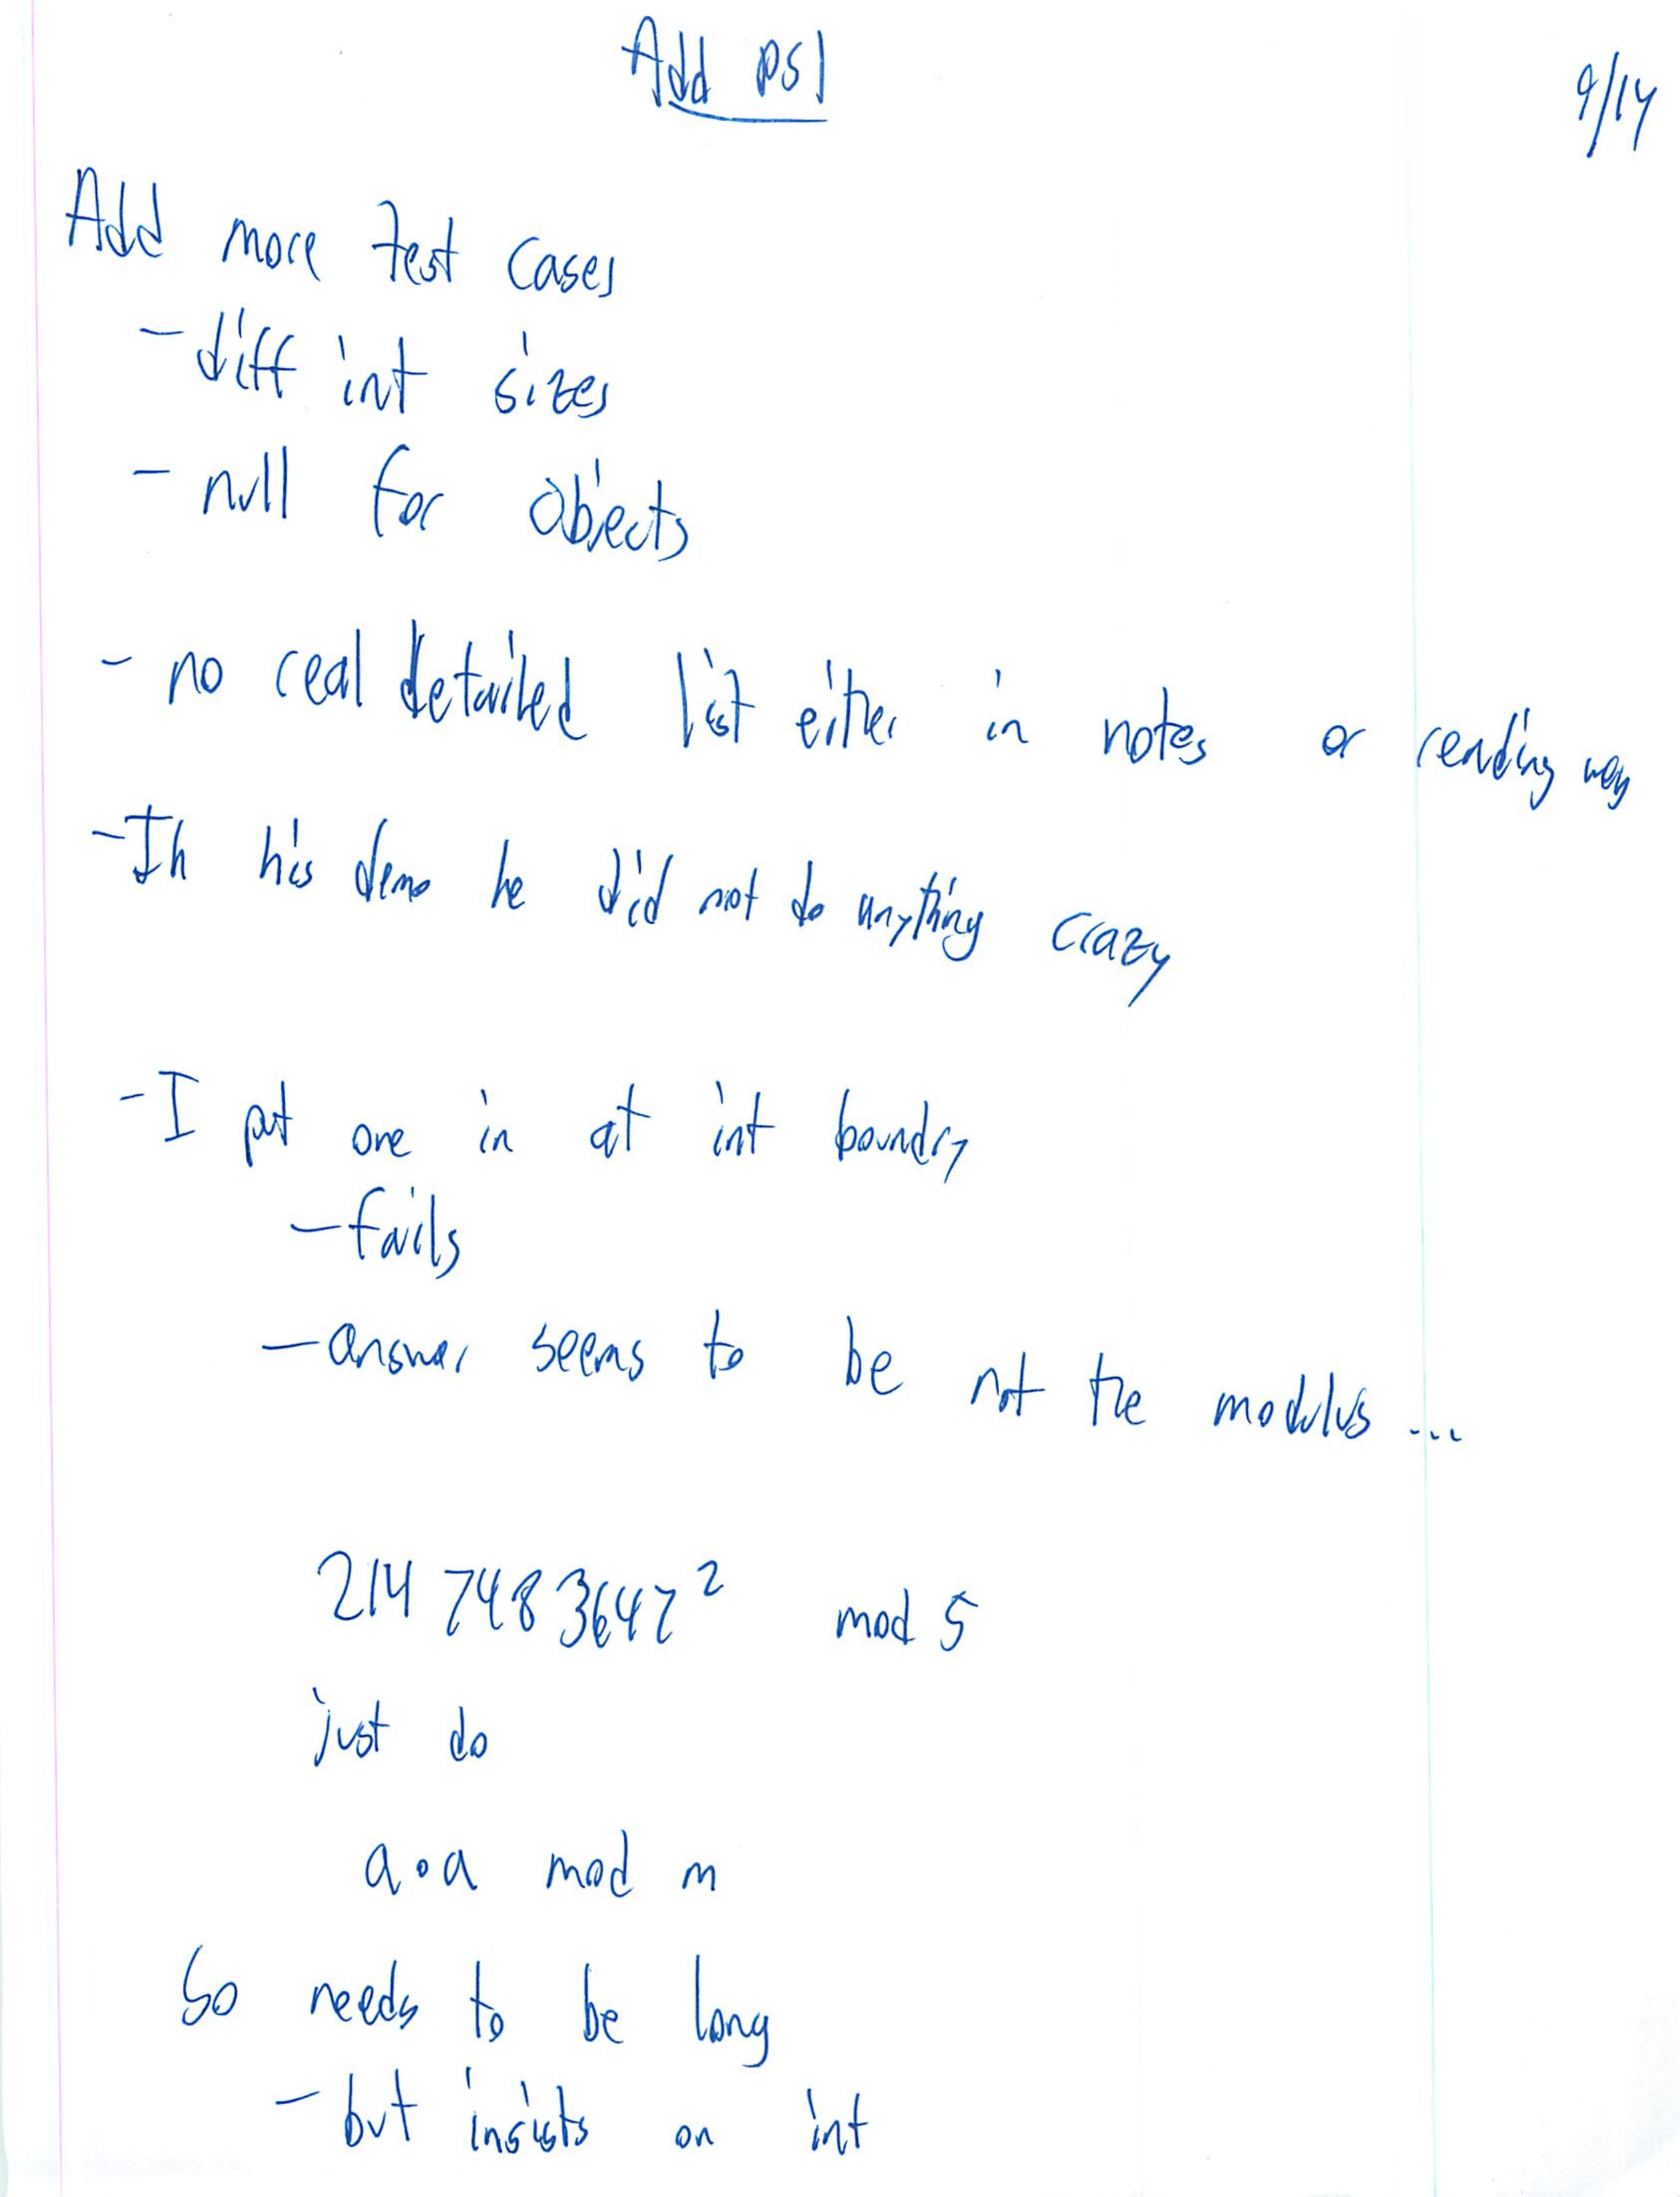 Add ps1
9/14
Add more test cases
- diff int sizes
- null for objects
- no real detailed list either in notes or reading
- In his demo he did not do anything crazy
- I put one in at int boundry
- fails
- answer seems to be not the modulus ...
2147483647² mod 5
just do
a•a mod m
So needs to be long
- but insists on int